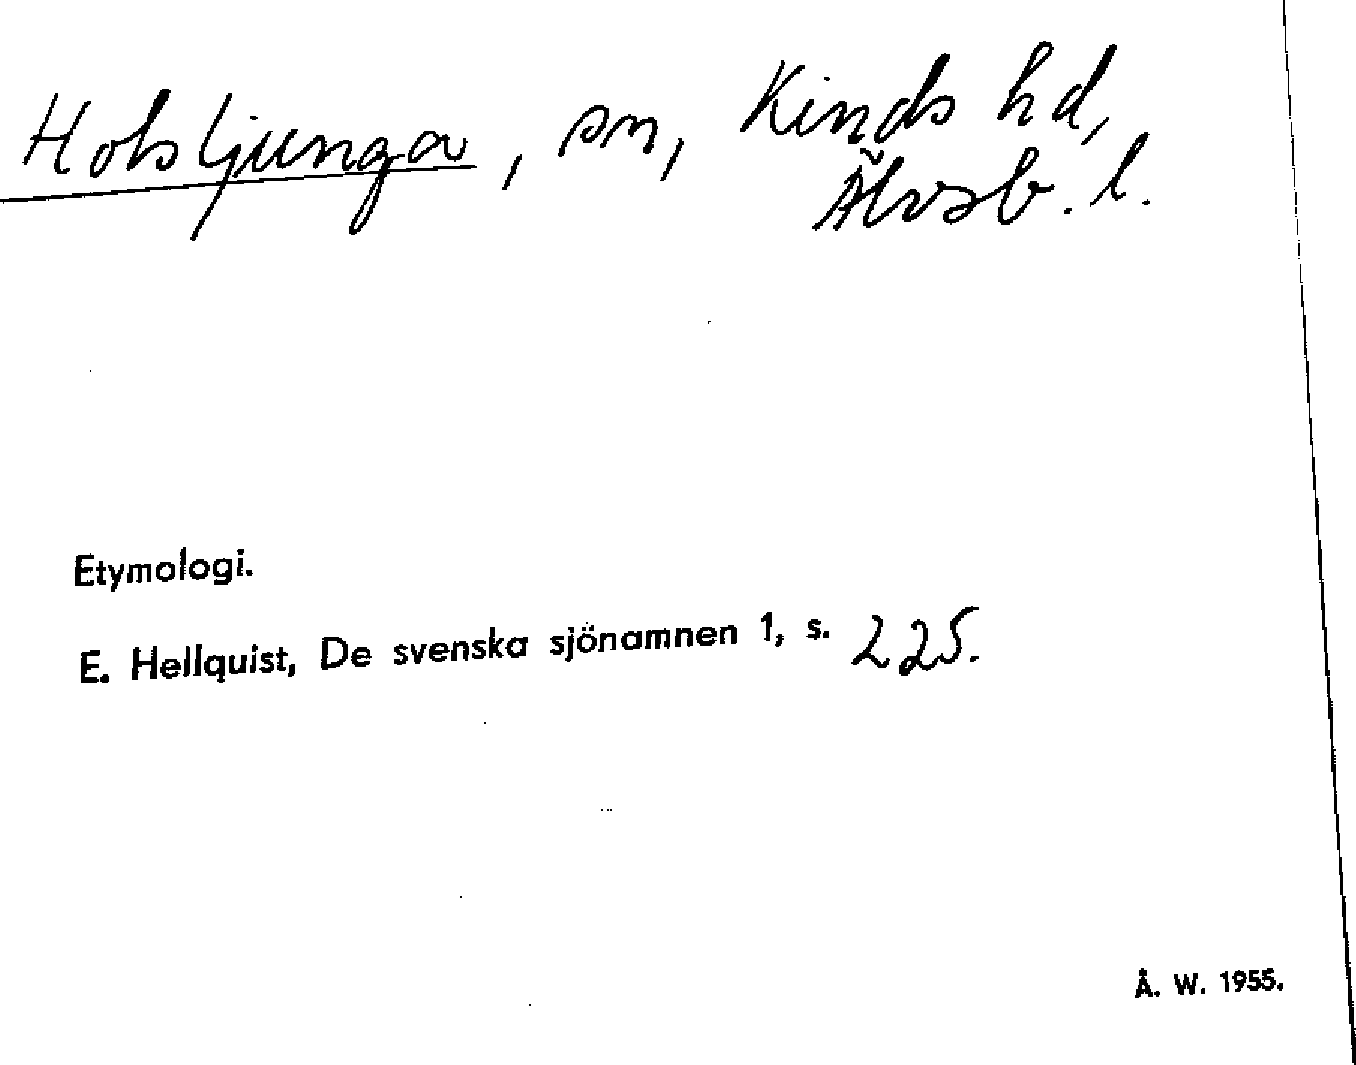 Holsljunga, sn, Kinds hd,
Älvsb. l.
Etymologi.
E. Hellquist, De svenska sjönamnen 1, s. 225.
Å. W. 1955.